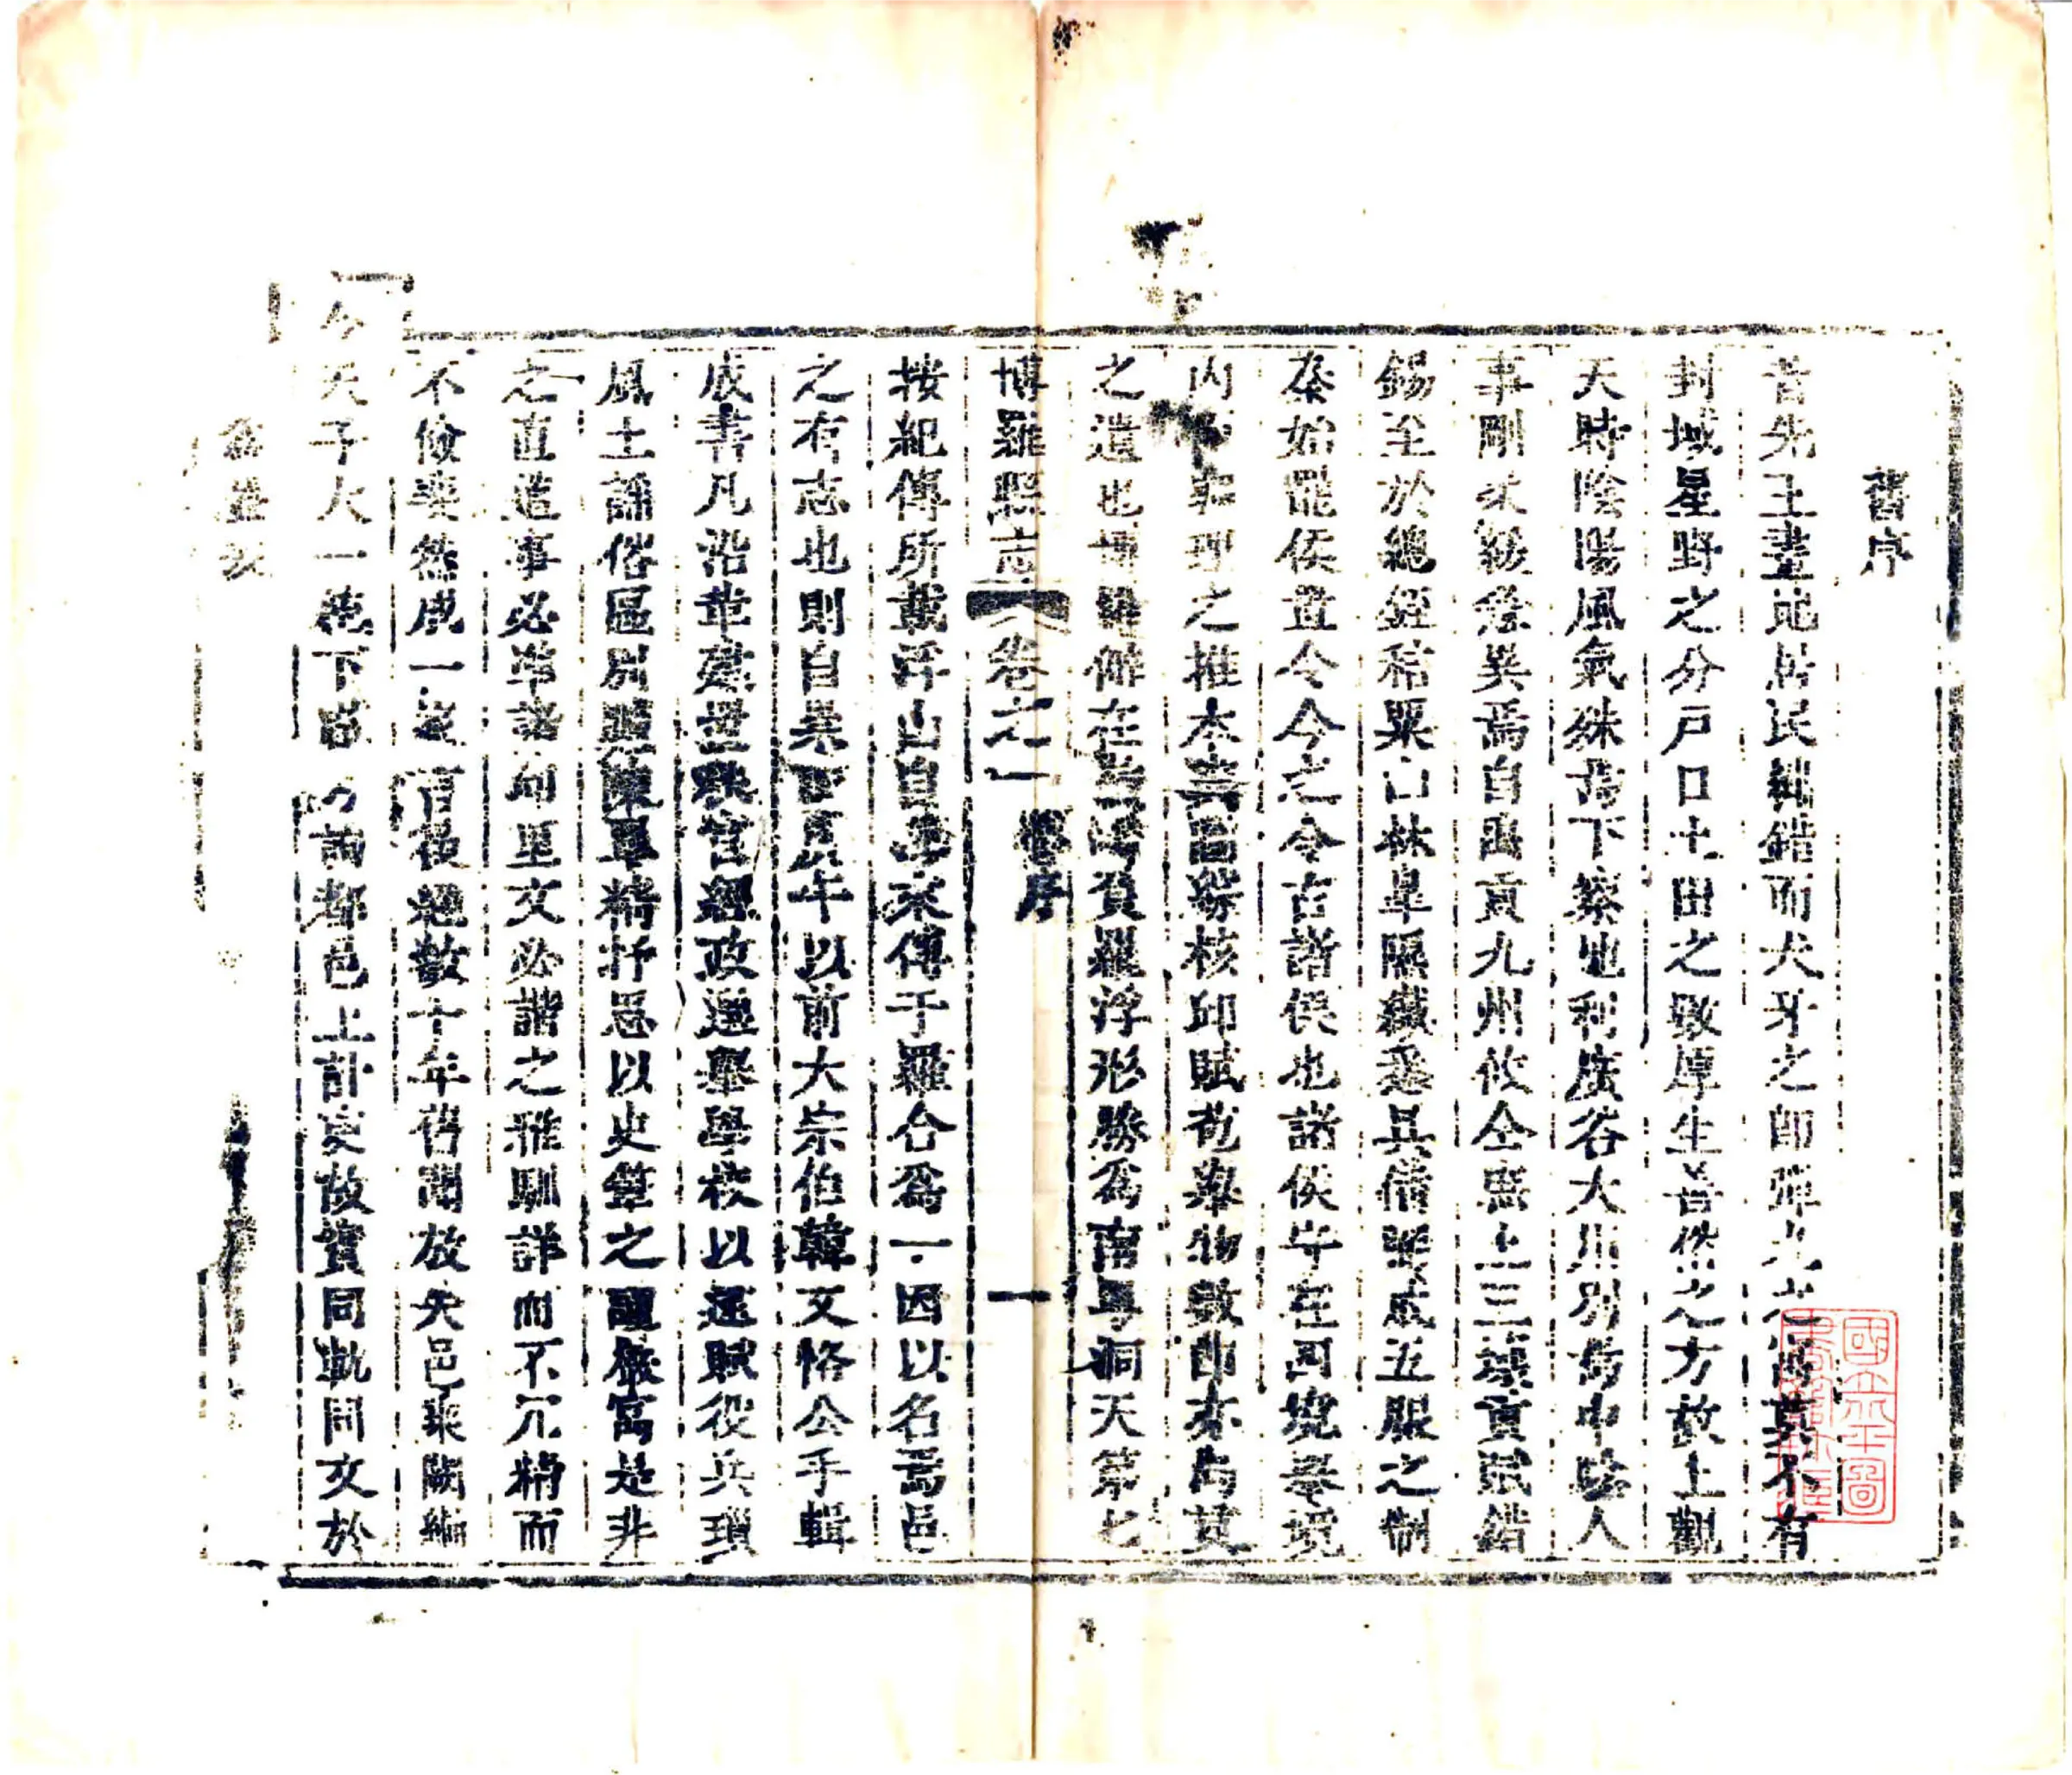 舊序
昔先王畫地居民繡錯而犬牙之即彈丸之邑莫不有
封域星野之分戶口土田之數厚生昔供之方故上觀
天時陰陽風氣殊焉下察地利廣谷大川別焉中驗人
事剛柔緩急異焉自禹貢九州攸全庶土三壤貢賦錯
錫至於總銍秸粟山林阜隰纖悉具備要成五服之制
秦始罷侯置令今之令古諸侯也諸侯守在四境舉境
內 理之推本崇 綜核邱賦苞舉物數即亦禹貢
之遺也博羅僻在 海負羅浮形勝為南粤洞天第七
博羅縣志 卷之一 舊序 一
按紀傳所載浮山自海來傅于羅合爲一因以名焉邑
之有志也則自 以前大宗伯韓文恪公手輯
成書凡沿革建置職官綱政選舉學校以逮賦役兵瑣
風土謠俗區別臚陳覃精抒思以史筆之謹嚴寓是非
之直道事必準諸 里文必諧之雅馴詳而不冗精而
不儉奕然成一 有後越數十年舊聞放失邑乘闕
今天子大一統下詔 都邑上計吏故實同軌同文於